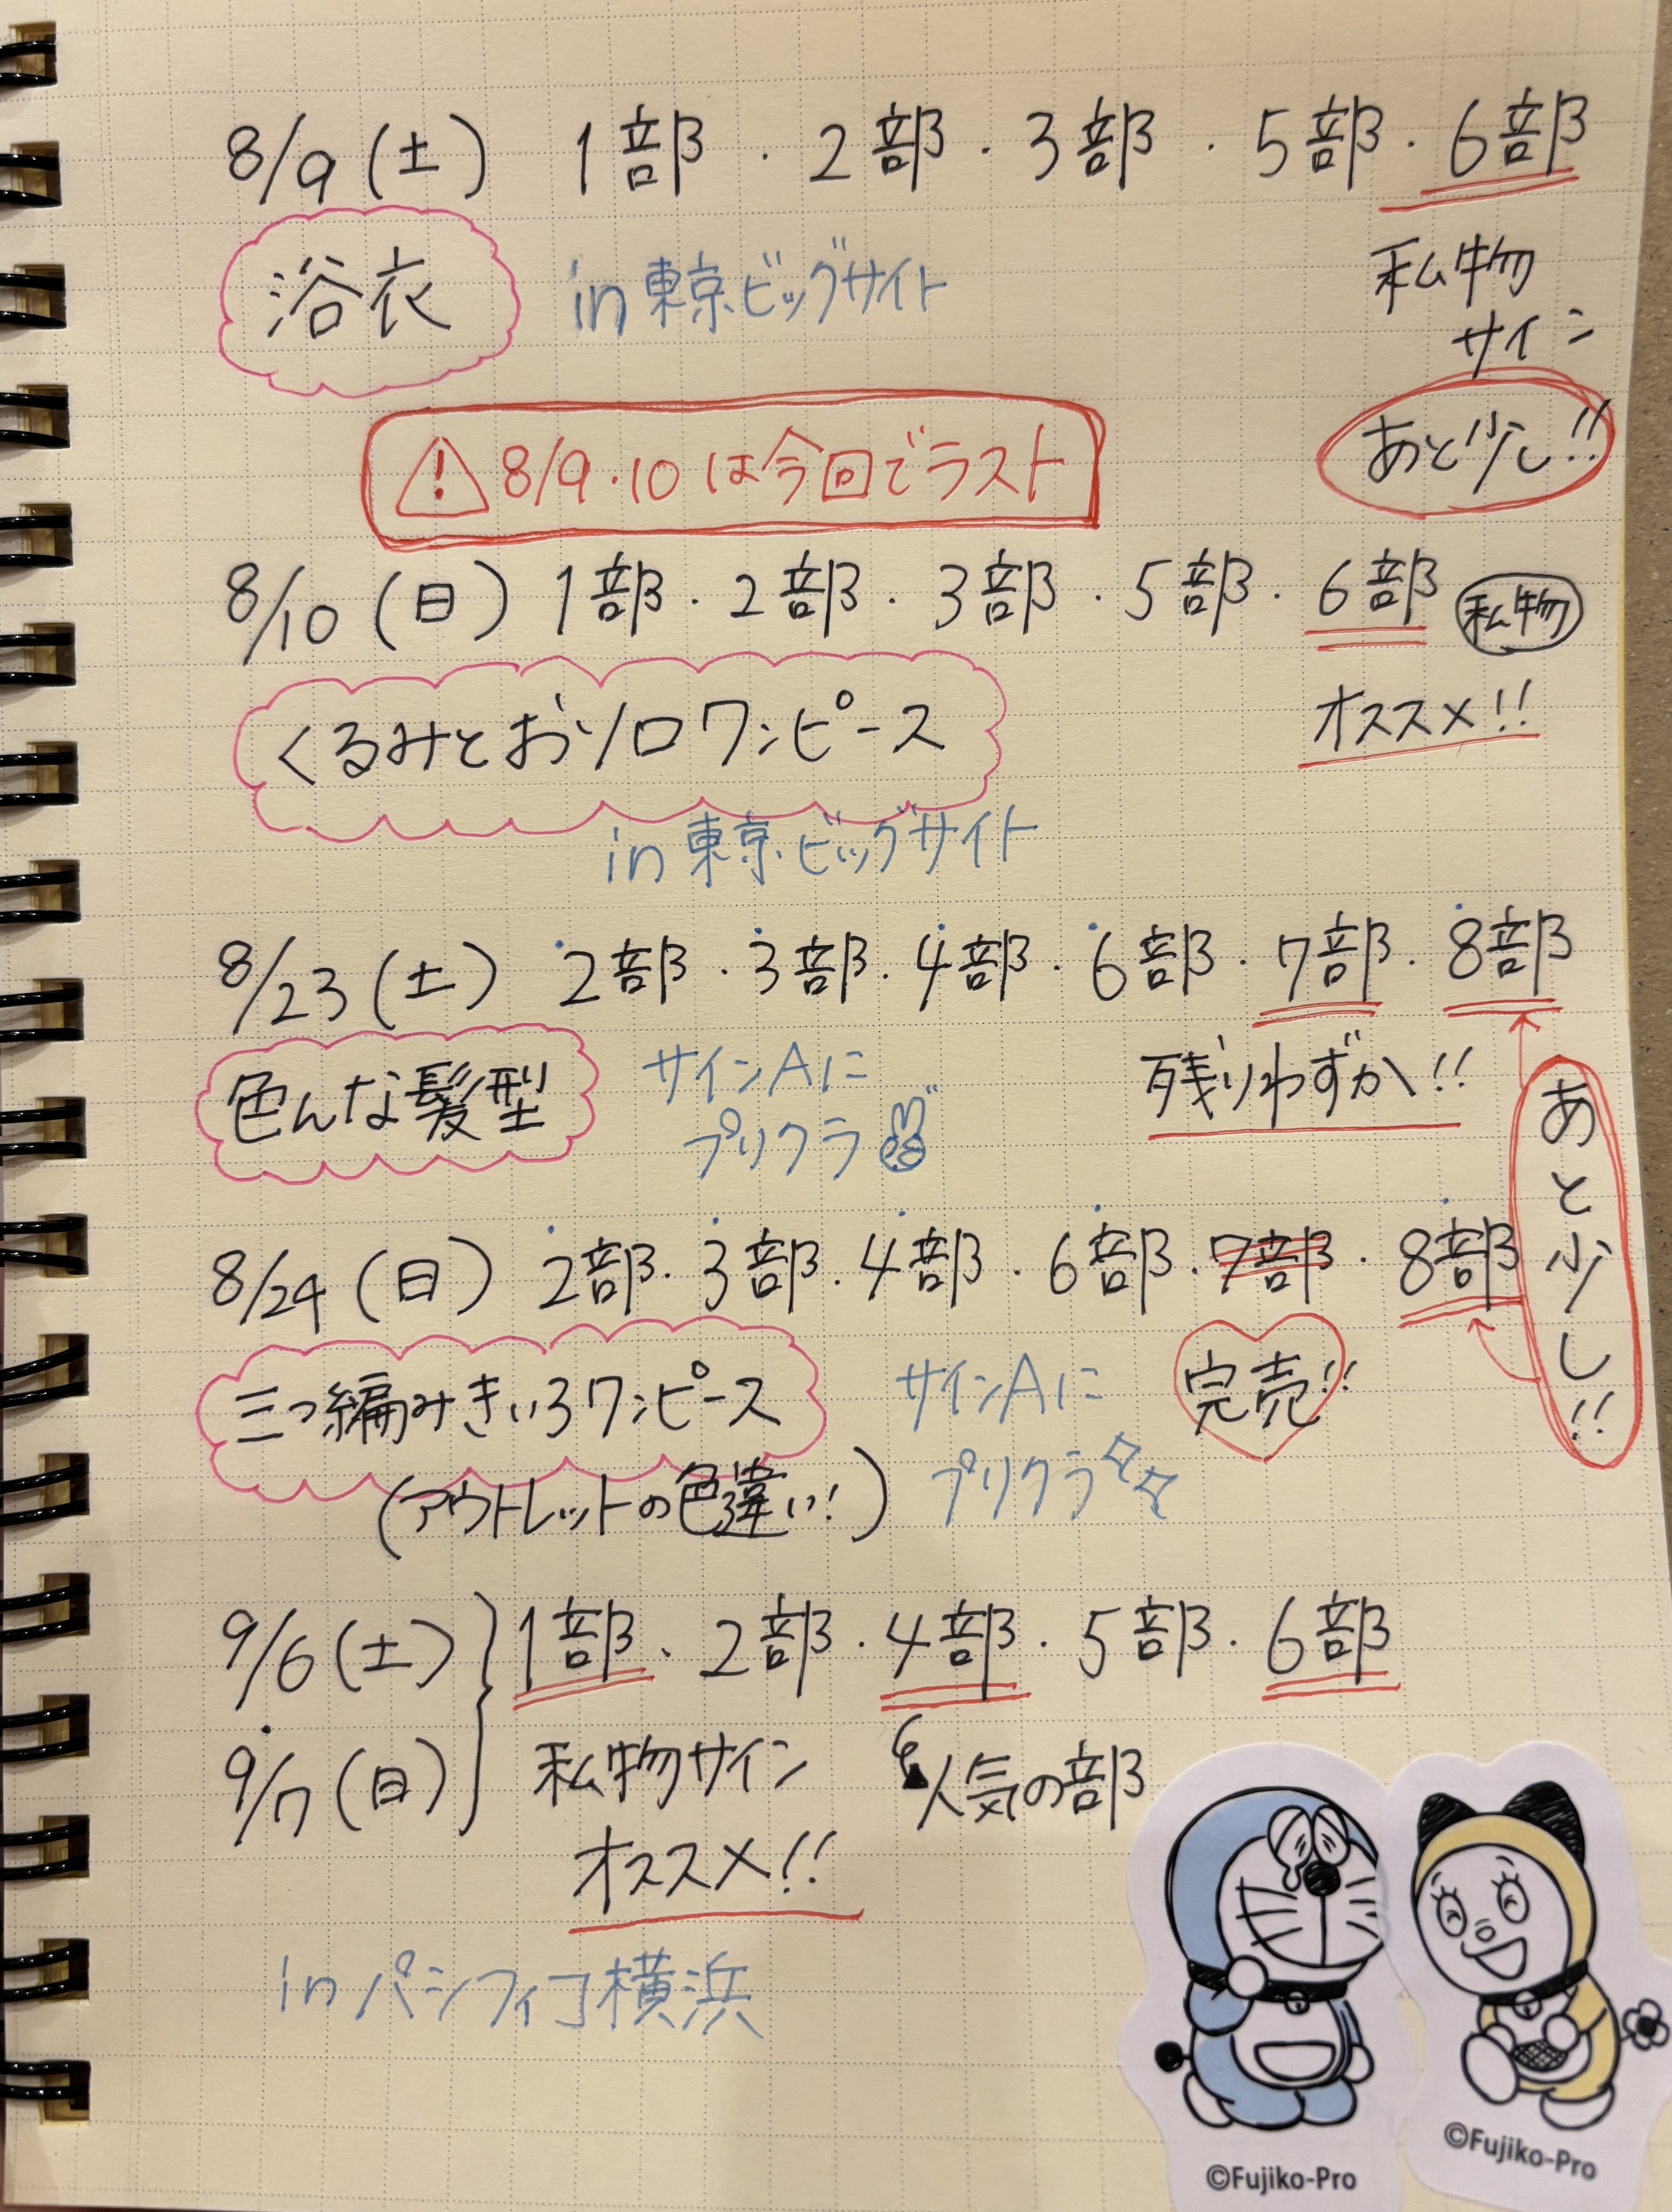 8/9(土) 1部・2部・3部・5部・6部
浴衣 in 東京ビッグサイト
私物
サイン
あと少し!!
⚠8/9・10は今回でラスト
8/10(日) 1部・2部・3部・5部・6部 私物
くるみとおソロワンピース
オススメ!!
in 東京ビッグサイト
8/23(土) 2部・3部・4部・6部・7部・8部
色んな髪型
サインAに
プリクラ
残りわずか!!
あと少し!!
8/24(日) 2部・3部・4部・6部・7部・8部
三つ編みきいろワンピース
(アウトレットの色違い!)
サインAに
プリクラ
完売!!
9/6(土) 1部・2部・4部・5部・6部
9/7(日) 私物サイン
オススメ!!
人気の部
in パシフィコ横浜
©Fujiko-Pro
©Fujiko-Pro